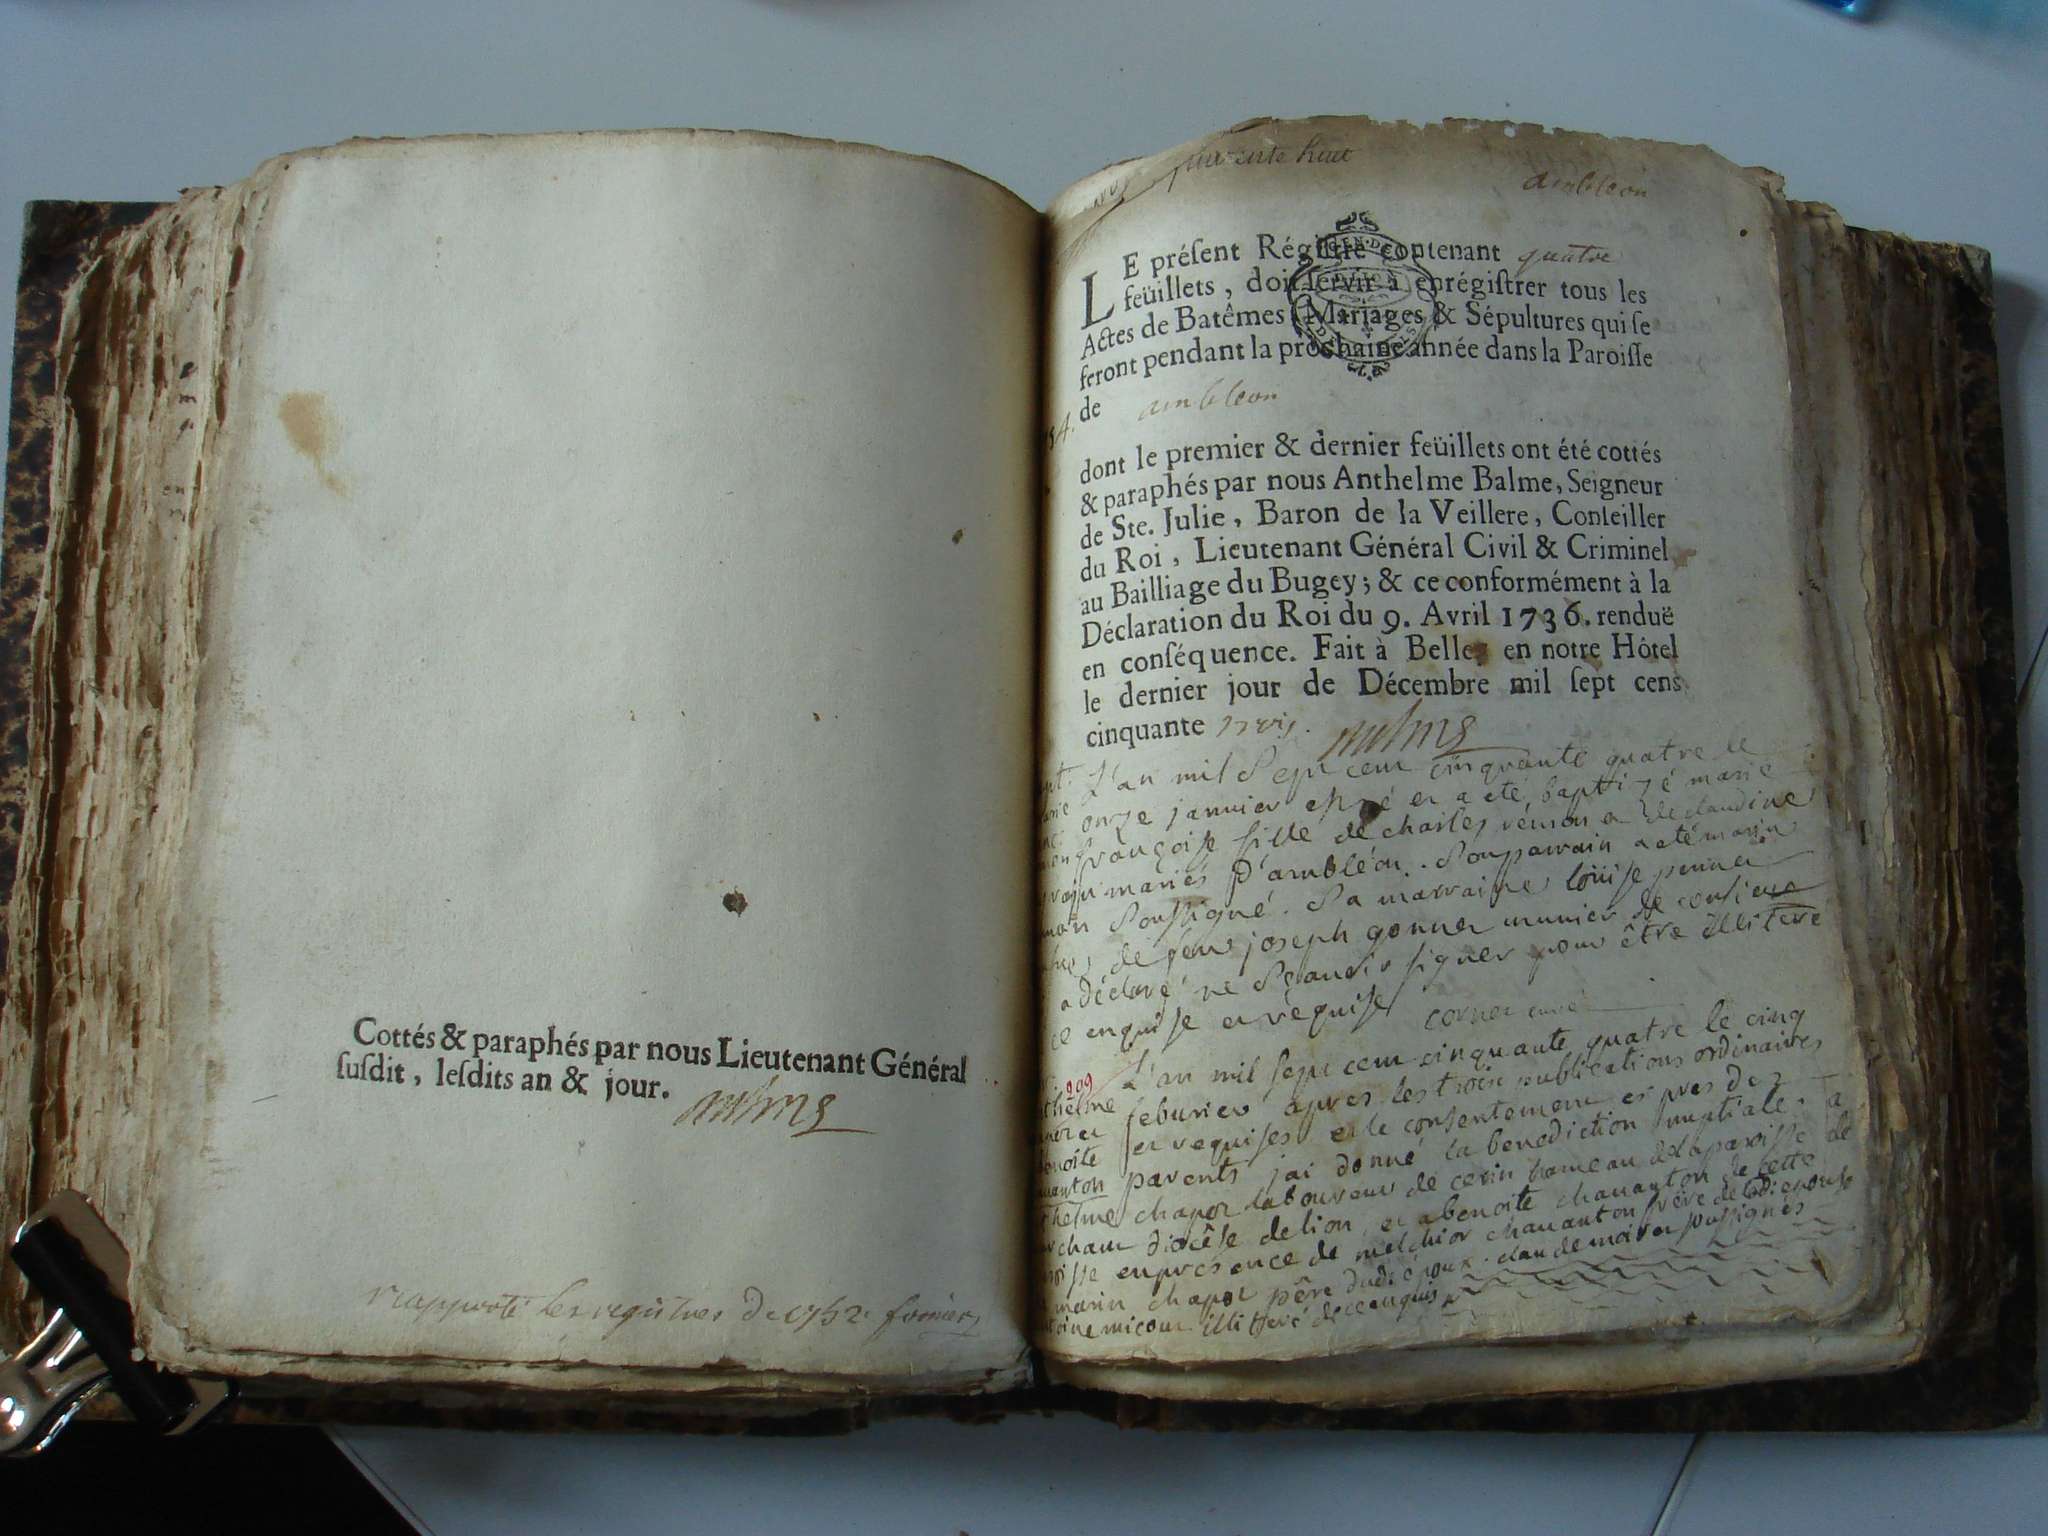 Cottés & paraphés par nous Lieutenant Général
ſuſdit, leſdits an & jour.
les registres de 1752.
quarente huit
ambleon
LE préſent Régiſtre contenant quatre
feüillets, doit ſervir à enrégiſtrer tous les
Actes de Batêmes, Mariages & Sépultures qui ſe
feront pendant la prochaine année dans la Paroiſſe
de ambleon
dont le premier & dernier feüillets ont été cottés
& paraphés par nous Anthelme Balme, Seigneur
de Ste. Julie, Baron de la Veillere, Conſeiller
du Roi, Lieutenant Général Civil & Criminel
au Bailliage du Bugey; & ce conformément à la
Déclaration du Roi du 9. Avril 1736. renduë
en conſéquence. Fait à Belley en notre Hôtel
le dernier jour de Décembre mil ſept cens
cinquante trois.
L'an mil Sept cent cinquante quatre le
onze janvier est né et a eté baptizé marie
françoise fille de charles et de claudine
mariés d'ambléon. Son parrain a eté marin
Soussigné. Sa marraine loüise
de feu joseph munier de
a déclaré ne Sçavoir signer pour être illiteré
ce enquise et réquise
L'an mil sept cent cinquante quatre le cinq
209
feburier apres les trois publications ordinaires
et requises et le consentement es pres des
parents jai donné la benediction nuptiale. a
chapot laboureur de cerin hameau de la paroisse de
diocêse de lion, et a benoite chavanton de cette
en presence de melchior chavanton frère de
marin chapot pêre dudt epoux. soussignés
illiteré de ce enquis